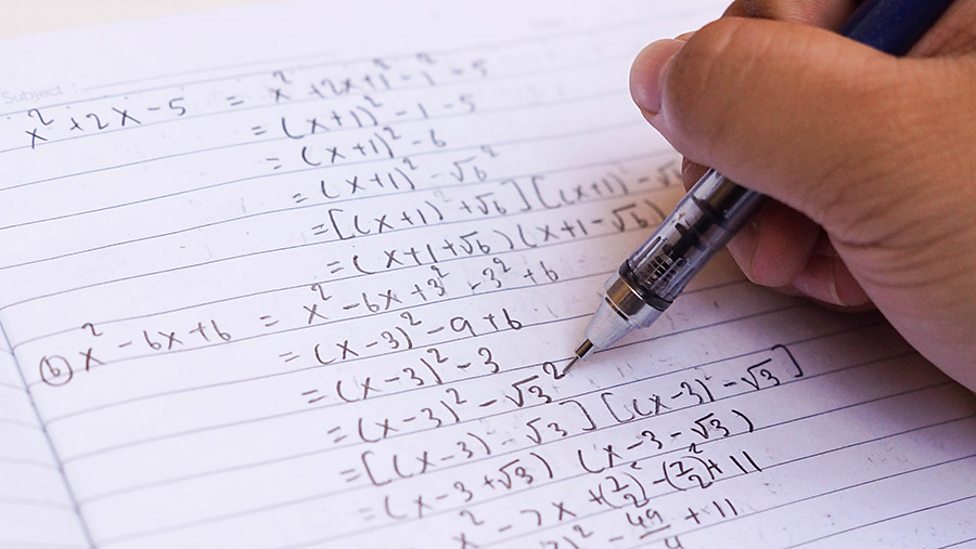 Subject :
x² + 2x - 5 = x² + 2x + 1² - 1² - 5
= (x+1)² - 1 - 5
= (x+1)² - 6
= (x+1)² - √6²
= [(x+1) + √6] [(x+1) - √6
= (x+1+√6) (x+1-√6)
(b) x² - 6x + 6 = x² - 6x + 3² - 3² + 6
= (x-3)² - 9 + 6
= (x-3)² - 3
= (x-3)² - √3²
= [(x-3) - √3] [(x-3) - √3]
= (x-3+√3) (x-3-√3)
x² - 7x + (7/2)² - (7/2)² + 11
)² - 49/4 + 11